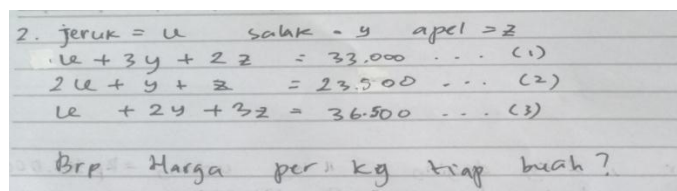 2. jeruk = x salak = y apel = z
x + 3y + 2z = 33.000 ... (1)
2x + y + z = 23.500 ... (2)
x + 2y + 3z = 36.500 ... (3)
Brp Harga per kg tiap buah?